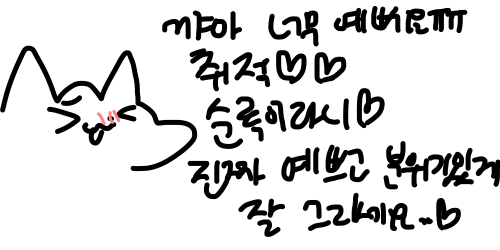 꺄아 너무 예뻐요ㅠㅠ
취적♡♡
순록이라시♡
진짜 예쁘고 분위기있게
잘 그리세요..♡